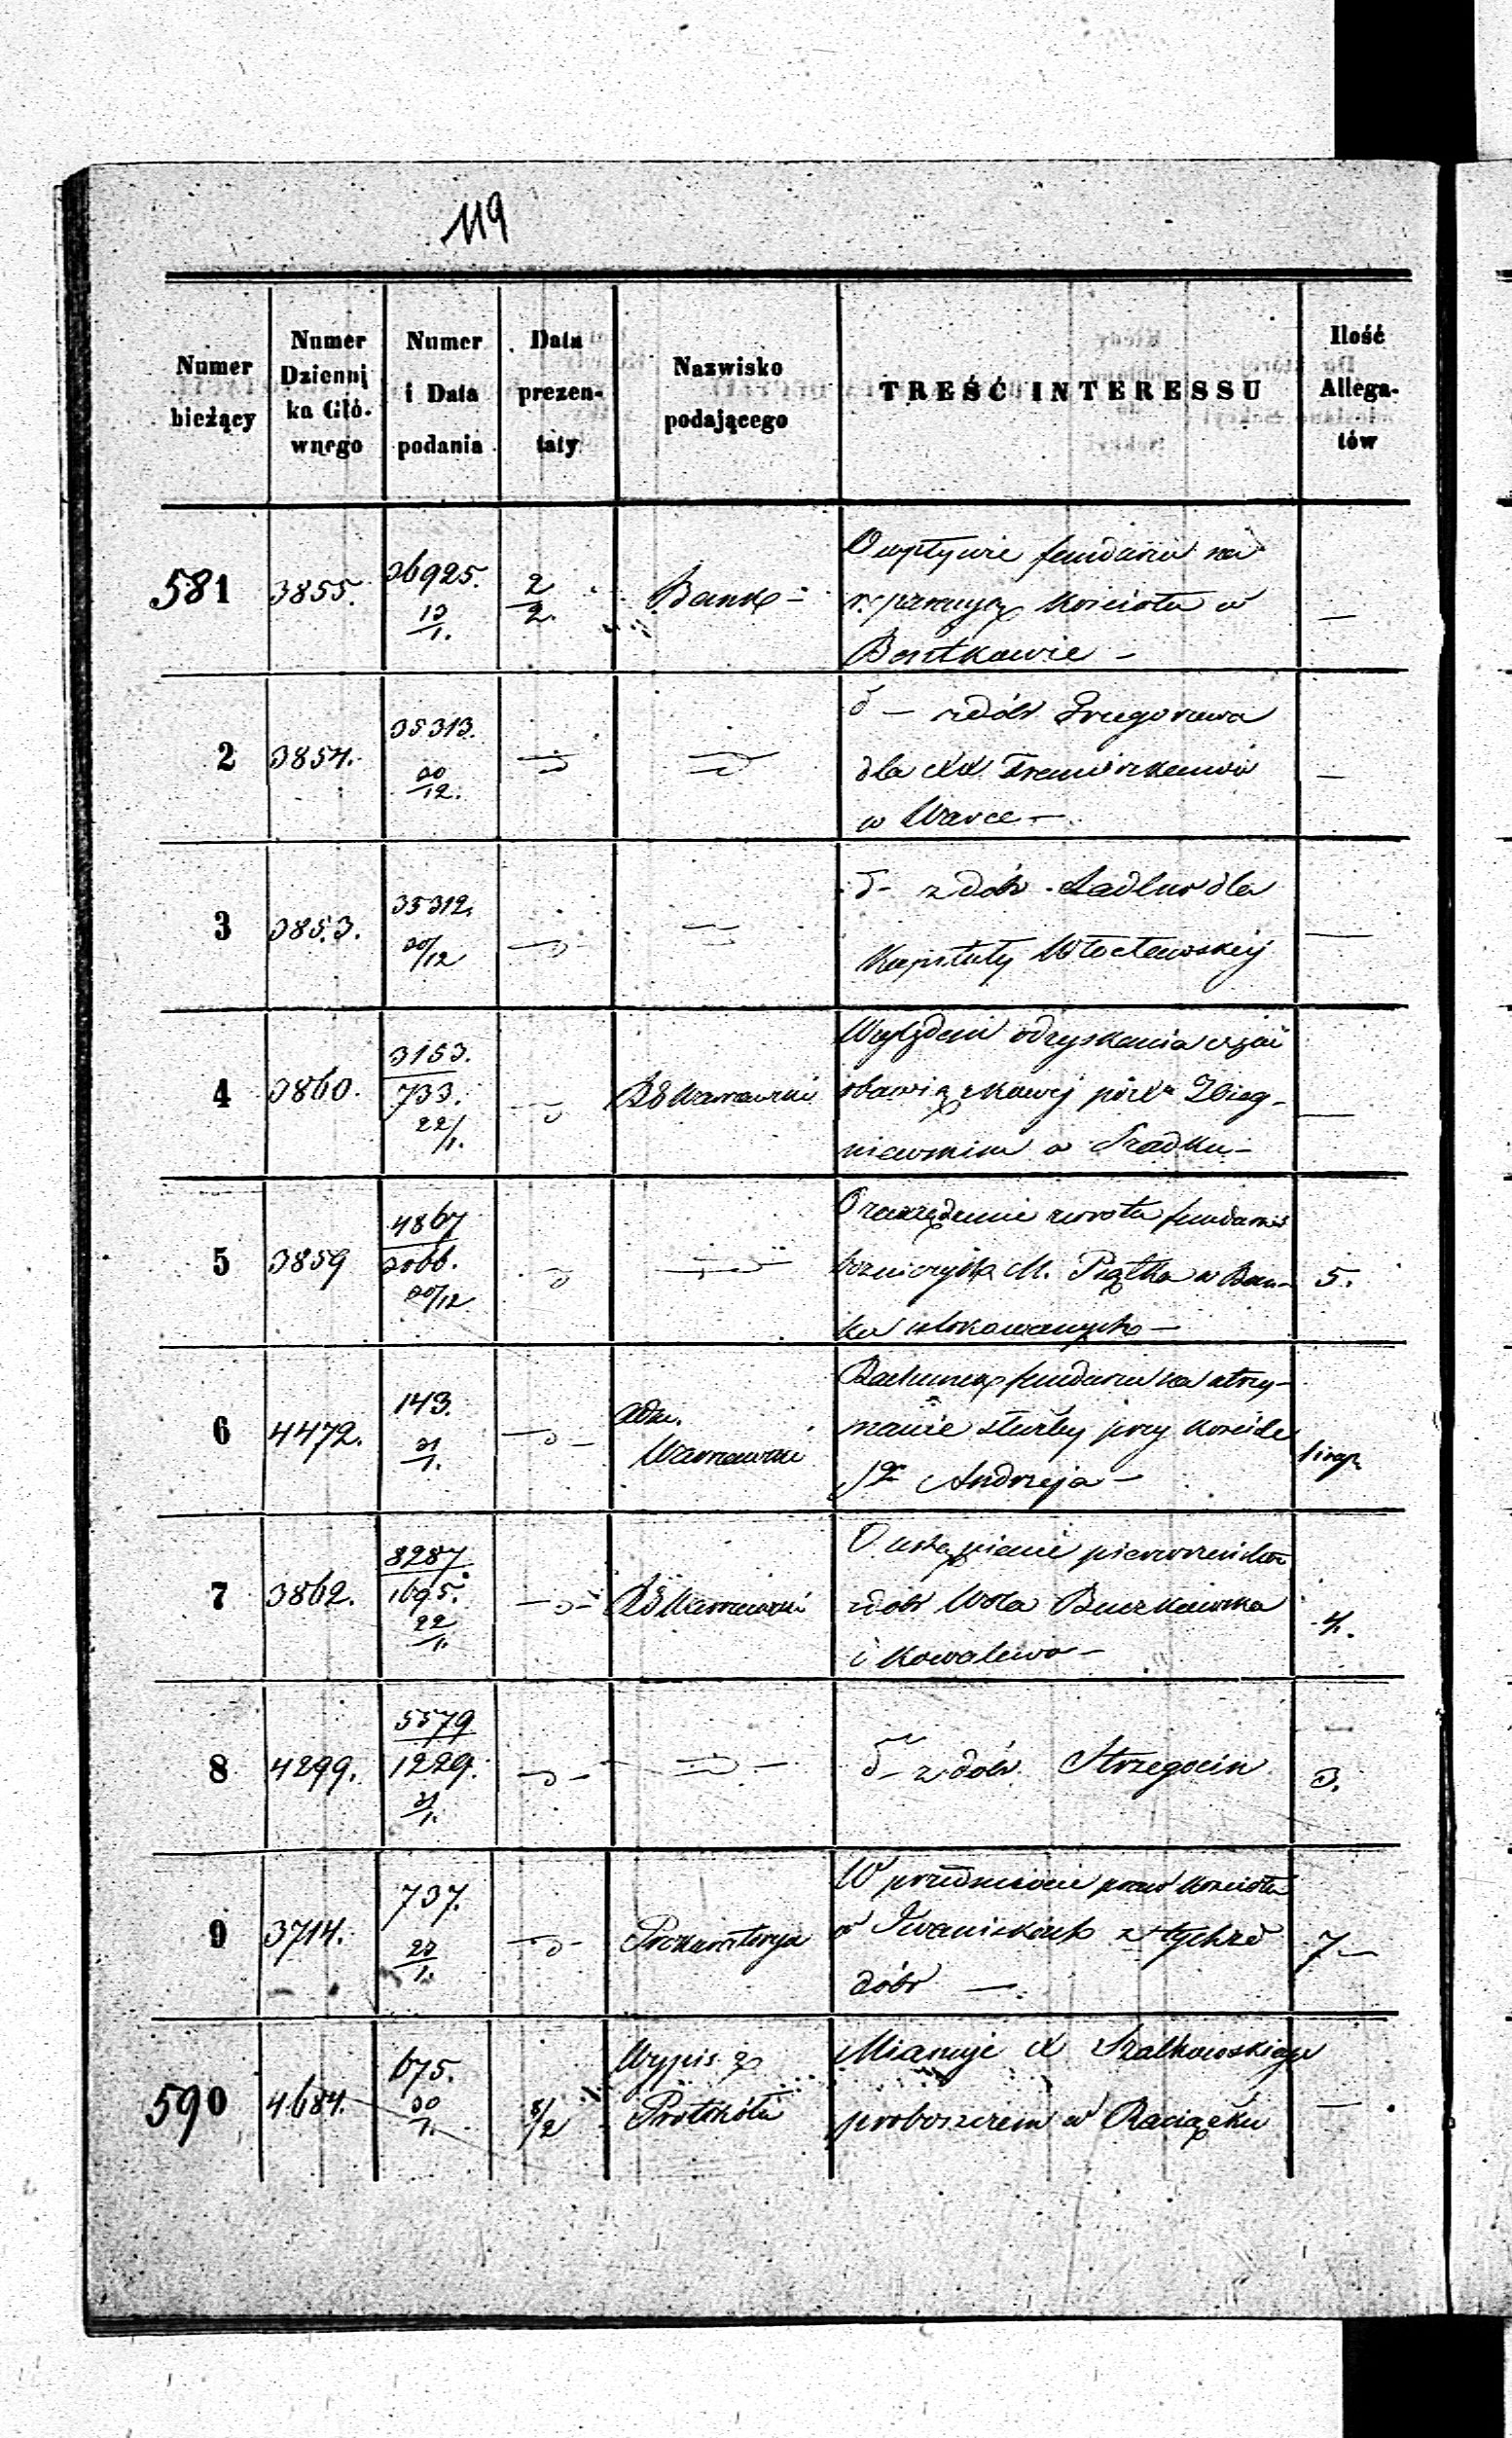 119
Numer bieżący
Numer Dzienni ka Głó- wnego
Numer i Data podania
Data prezen- taty
Nazwisko podającego
TREŚĆ INTERESSU
Ilość Allega- tów
581 3855. 36925. 13/1. 2/2. Bank –
O wpływie funduszu na
reparacyą Kościoła w
–
2 3854. 35313. 30/12.
d – z dóbr
dla XX Franciszkanów
w Warce –
3 3853. 35312. 30/12
d – z dóbr dla
Kapituły Włocławskiej
4 3860. 3153./733. 22/1. RG Warszawski
Względem odzyskania
w Szadku –
5 3859 4867/3066. 30/12
zwrotu
M. Piątka w Ban-
ku ulokowanych –
5.
6 4472. 143. 31/1. Adm. Warszawski
Rachunek funduszu na utrzy-
manie służby przy Kościele
Sgo Andrzeja –
7 3862. 8287/1695. 22/1. RG Warszawski
O ustąpienie pierwszeństwa
z dóbr Wola
i Kowalewo –
4.
8 4299. 5579/1229. 31/1.
d – z dóbr Strzegocin
3.
9 3714. 737. 23/1. Prokuratorya
W przedmiocie praw Kościoła
w Iwaniskach z tychże
dóbr –
7 –
590 4684. 675. 30/1. 8/2 Wypis z Protokółu
Mianuje X Szalkowskiego
proboszczem w Raciążku